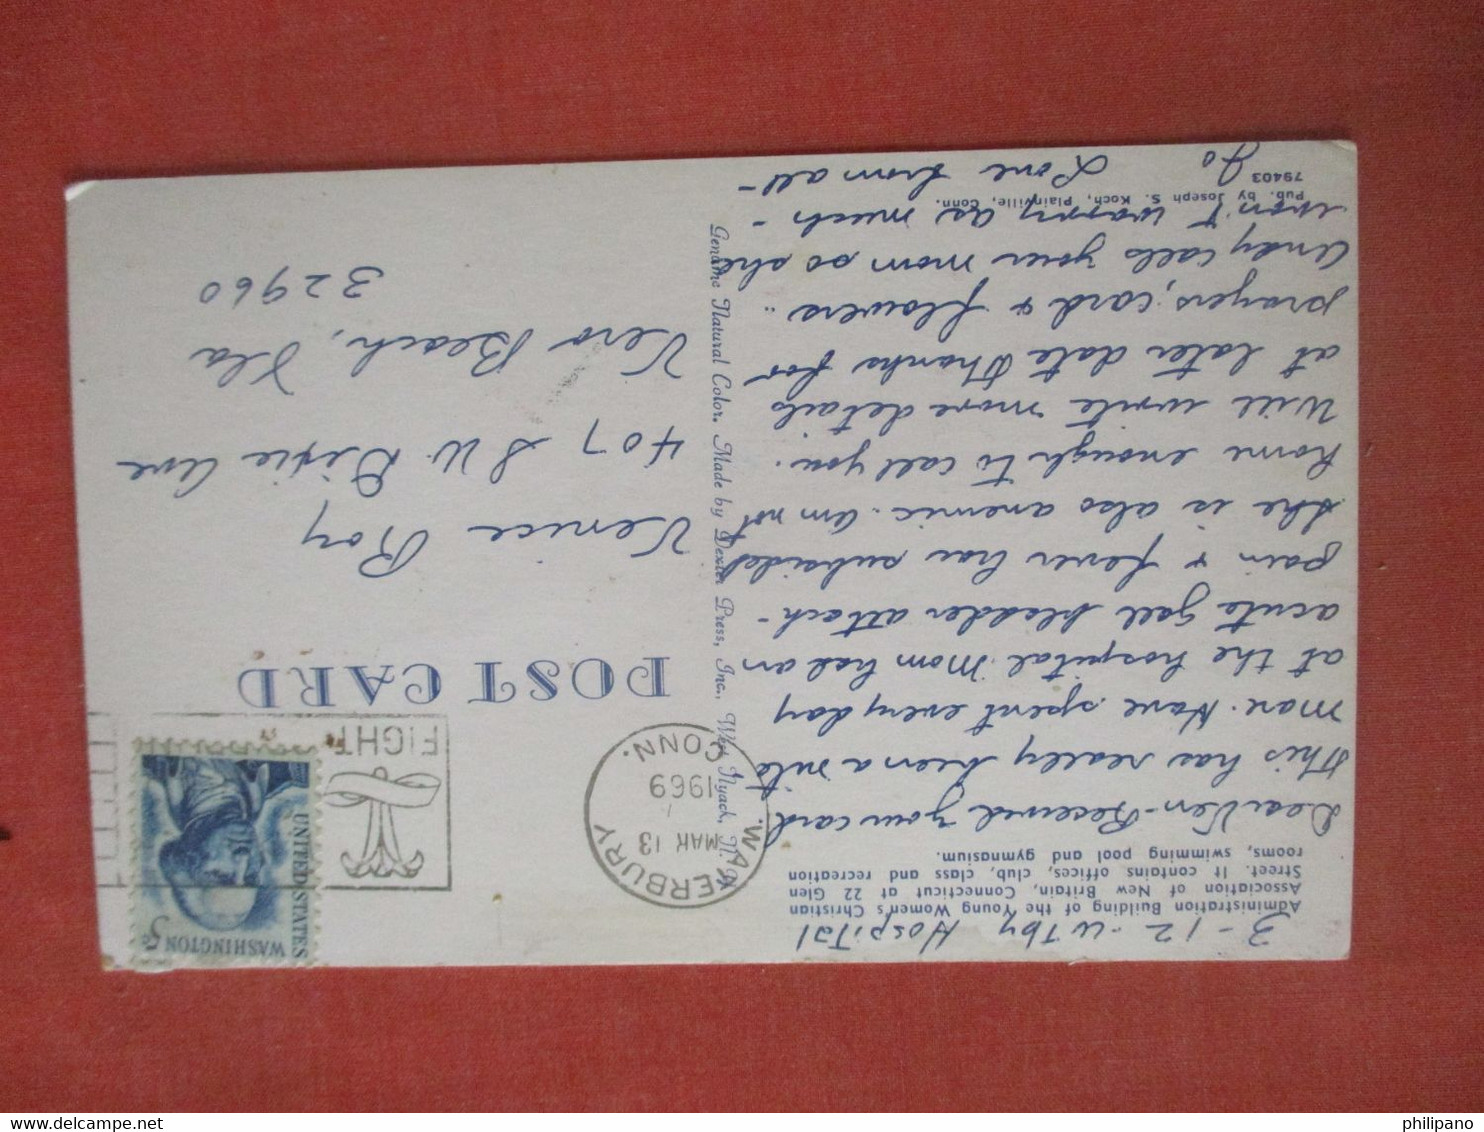 3-12-WTBY HOSPITAL
Administration Building of the Young Women's Christian
Association of New Britain, Connecticut at 22 Glen
Street. It contains offices, club, class and recreation
rooms, swimming pool and gymnasium.
Dear Ven-Received your card
This has really been a
mare. Have spent every day
at the hospital. Mom had an
acute gall bladder attack-
pain & fever has subsided
She is also anemic. Am not
home enough to call you.
Will write more details
at later date Thanks for
prayers, card & flowers..
Andy calls your mom so she
won't worry as much -
Love from all-
Jo
Pub. by Joseph S. Koch, Plainville, Conn.
79403
Genuine Natural Color, Made by Dexter Press, Inc., West Nyack, N. Y.
WATERBURY
MAR 13
1969
CONN.
FIGHT
UNITED STATES
WASHINGTON
5c
POST CARD
Venice Roy
407 S W. Dixie Ave
Vero Beach, Fla
32960
philipano